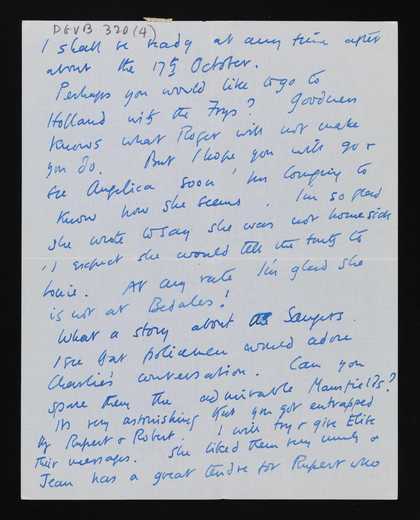 DGVB 320 (4)
I shall be ready at any time after
about the 17th October.
Perhaps you would like to go to
Holland with the Frys? Goodness
knows what Roger will not make
you do. But I hope you will go &
see Angelica soon, I'm longing to
know how she seems. I'm so glad
she wrote to say she was not homesick
, I expect she would tell the truth to
Louie. At any rate I'm glad she
is not at Bedales!
What a story about Sangers.
I see that policemen would adore
Charlie's conversation. Can you
spare them the admirable Mansfields?
It's very astonishing that you got entrapped
by Rupert & Robert. I will try & give Elise
their messages. She liked them very much &
Jean has a great tendre for Rupert who